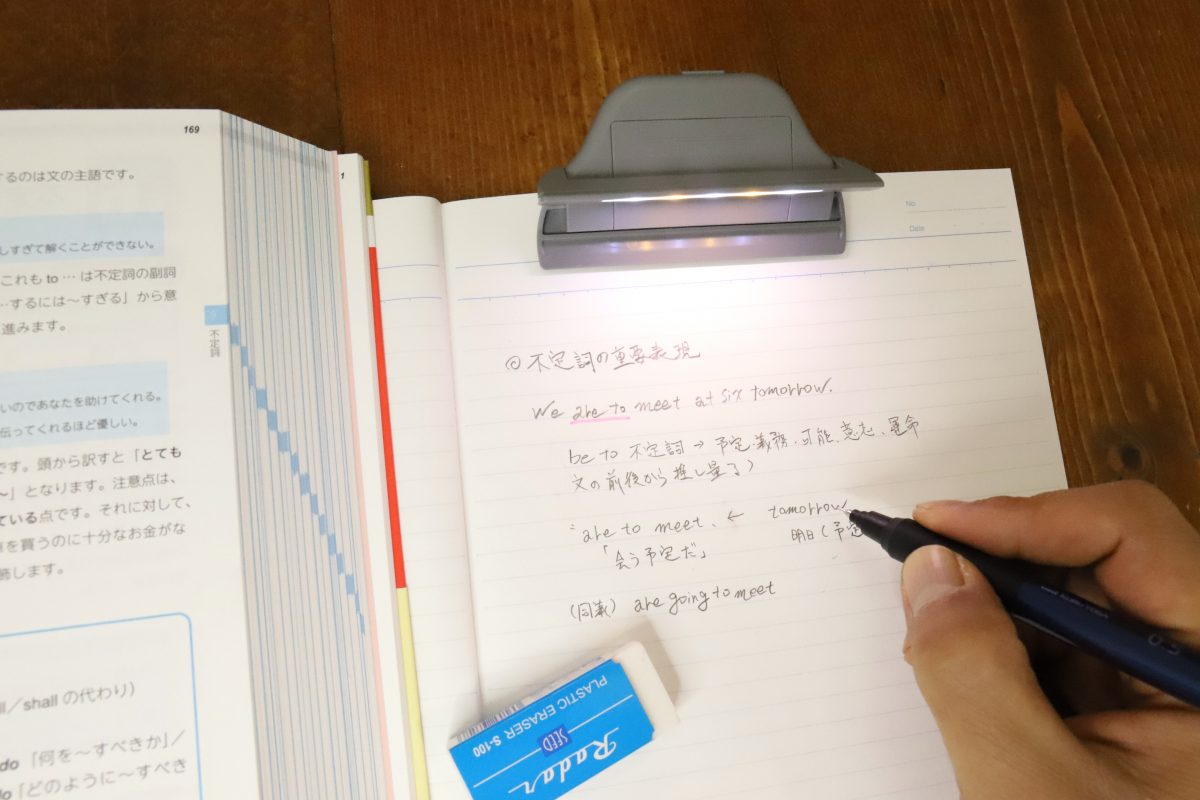 169
するのは文の主語です。
しすぎて解くことができない。
これも to … は不定詞の副詞
…するには〜すぎる」から意
進みます。
不定詞
いのであなたを助けてくれる。
伝ってくれるほど優しい。
です。頭から訳すと「とても
〜」となります。注意点は、
ている点です。それに対して、
を買うのに十分なお金がな
飾します。
shall の代わり)
do 「何を〜すべきか」/
「どのように〜すべき
1
No
Date
◎不定詞の重要表現
We are to meet at six tomorrow.
be to 不定詞 → 予定、義務、可能、意志、運命
文の前後から推し量る)
are to meet. ← tomorrow
「会う予定だ」 明日(予定
(同義) are going to meet
PLASTIC ERASER S-100
SEED
Radar
0.5